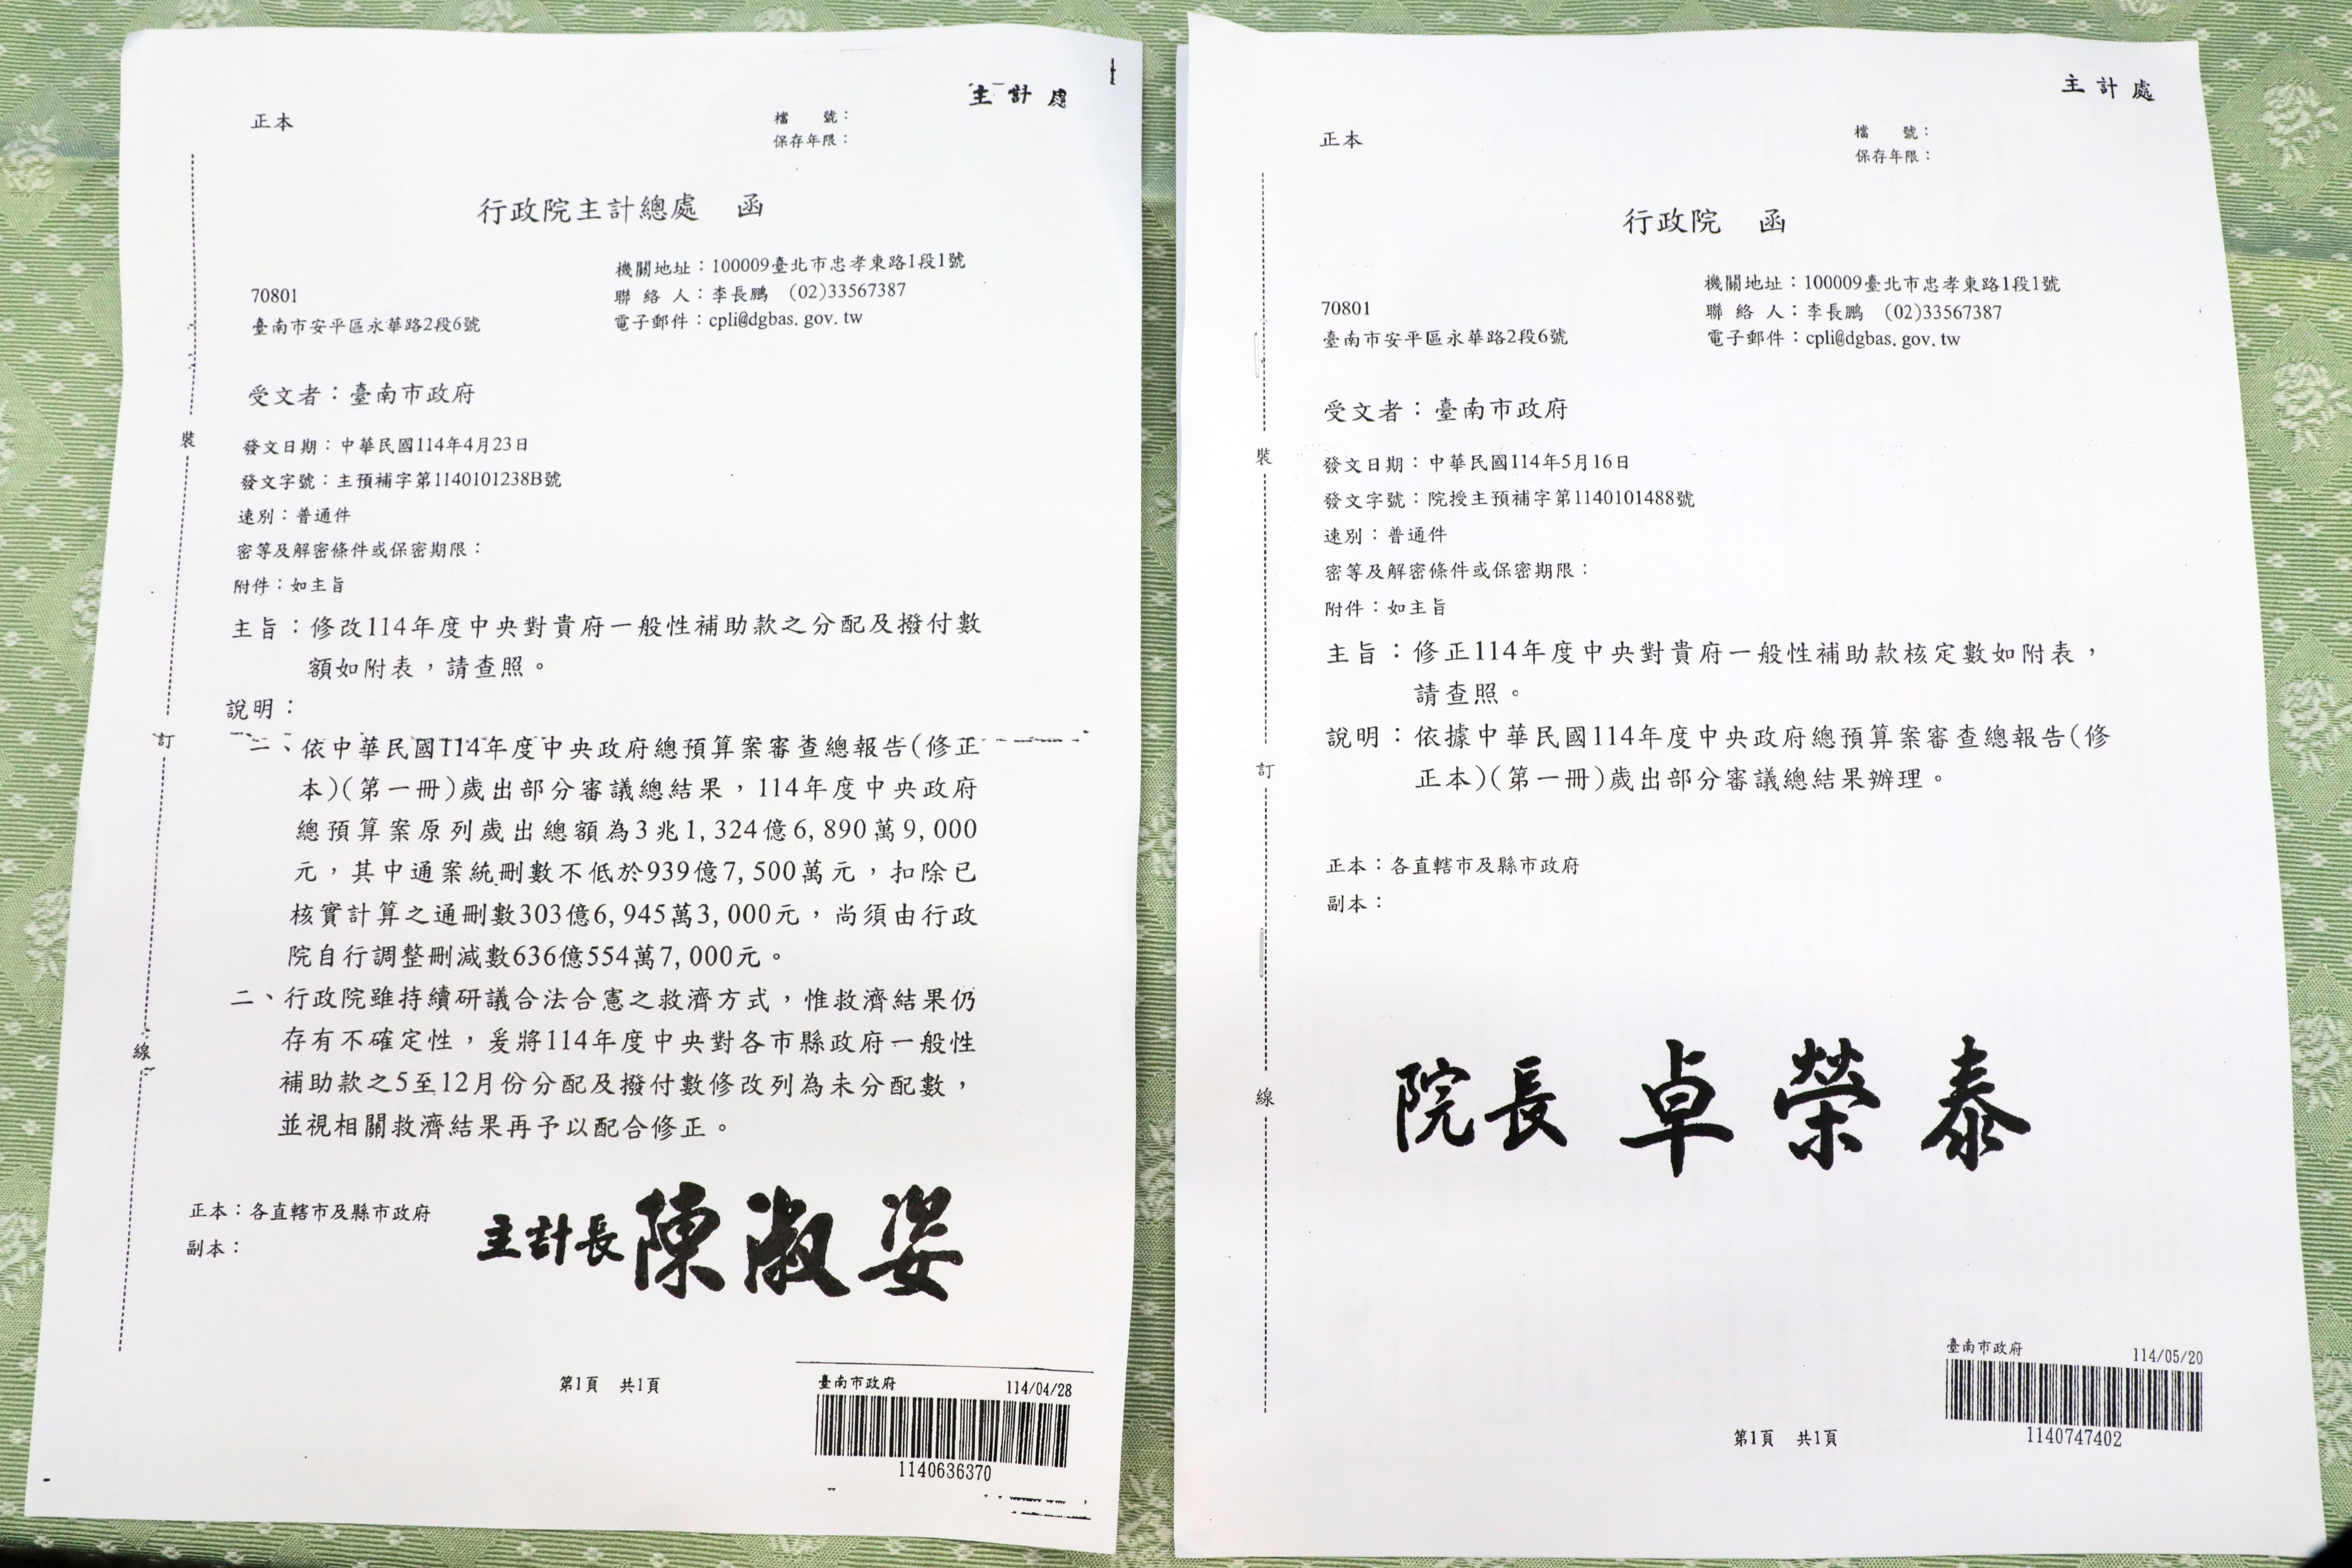 主計處
正本
檔　　號：
保存年限：
行政院主計總處　函
機關地址：100009臺北市忠孝東路1段1號
聯 絡 人：李長鵬　(02)33567387
電子郵件：cpli@dgbas.gov.tw
70801
臺南市安平區永華路2段6號
受文者：臺南市政府
發文日期：中華民國114年4月23日
發文字號：主預補字第1140101238B號
速別：普通件
密等及解密條件或保密期限：
附件：如主旨
主旨：修改114年度中央對貴府一般性補助款之分配及撥付數
額如附表，請查照。
說明：
一、依中華民國114年度中央政府總預算案審查總報告(修正
本)(第一冊)歲出部分審議總結果，114年度中央政府
總預算案原列歲出總額為3兆1,324億6,890萬9,000
元，其中通案統刪數不低於939億7,500萬元，扣除已
核實計算之通刪數303億6,945萬3,000元，尚須由行政
院自行調整刪減數636億554萬7,000元。
二、行政院雖持續研議合法合憲之救濟方式，惟救濟結果仍
存有不確定性，爰將114年度中央對各市縣政府一般性
補助款之5至12月份分配及撥付數修改列為未分配數，
並視相關救濟結果再予以配合修正。
正本：各直轄市及縣市政府
副本：
主計長 陳淑姿
裝
訂
線
第1頁　共1頁
臺南市政府　114/04/28
1140636370
主計處
正本
檔　　號：
保存年限：
行政院　函
機關地址：100009臺北市忠孝東路1段1號
聯 絡 人：李長鵬　(02)33567387
電子郵件：cpli@dgbas.gov.tw
70801
臺南市安平區永華路2段6號
受文者：臺南市政府
發文日期：中華民國114年5月16日
發文字號：院授主預補字第1140101488號
速別：普通件
密等及解密條件或保密期限：
附件：如主旨
主旨：修正114年度中央對貴府一般性補助款核定數如附表，
請查照。
說明：依據中華民國114年度中央政府總預算案審查總報告(修
正本)(第一冊)歲出部分審議總結果辦理。
正本：各直轄市及縣市政府
副本：
院長 卓榮泰
裝
訂
線
臺南市政府　114/05/20
1140747402
第1頁　共1頁